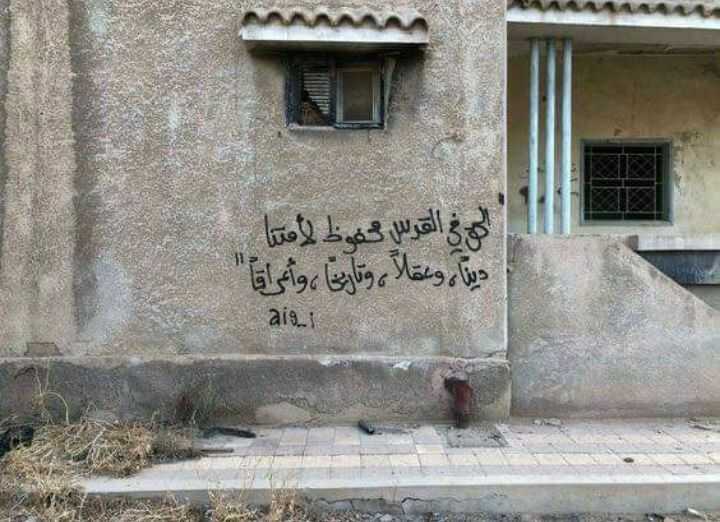 الحق في القدس محفوظ لأمتنا
دينًا، وعقلاً، وتاريخًا، وأعراقًا"